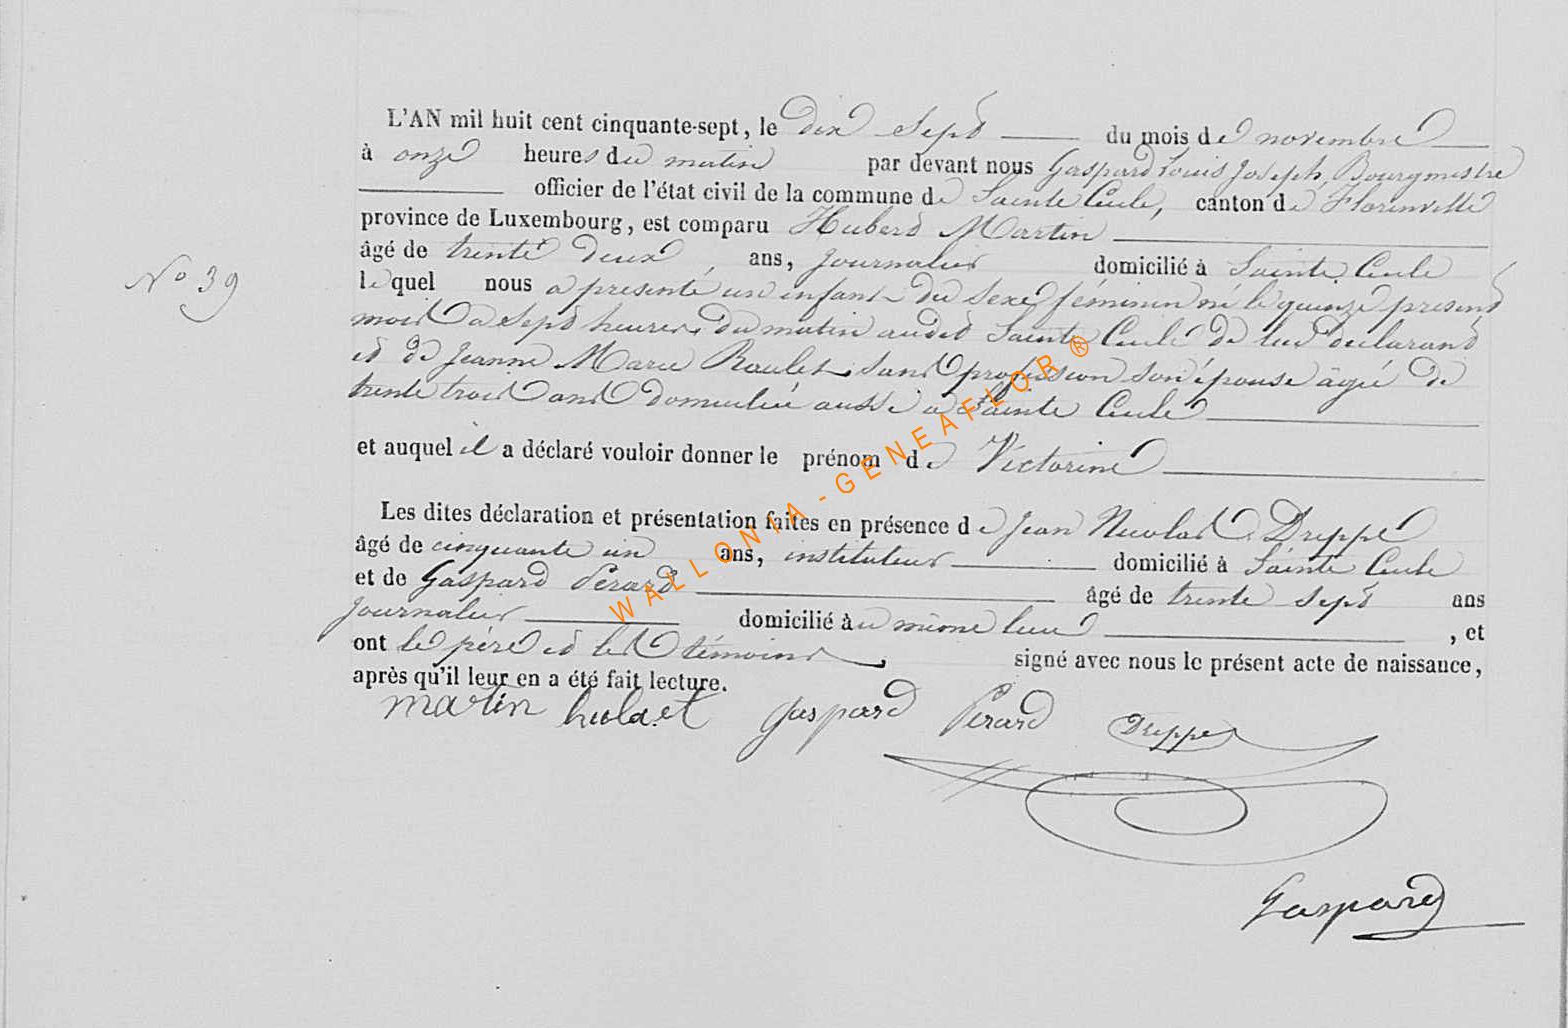 L'AN mil huit cent cinquante-sept, le dix sept du mois de novembre
à onze heures du matin par devant nous Gaspard Louis Joseph, Bourgmestre
officier de l'état civil de la commune de Sainte Cécile, canton de Florenville
province de Luxembourg, est comparu Hubert Martin
âgé de trente deux ans, journalier domicilié à Sainte Cécile
lequel nous a présenté un enfant du sexe féminin né le quinze présent
mois à sept heures du matin audit Sainte Cécile de lui déclarant
et de Jeanne Marie Raulet sans profession son épouse âgée de
trente trois ans domiciliée aussi à Sainte Cécile
N° 39
et auquel il a déclaré vouloir donner le prénom de Victorine
Les dites déclaration et présentation faites en présence de Jean Nicolas Dreppe
âgé de cinquante un ans, instituteur domicilié à Sainte Cécile
et de Gaspard Pérard âgé de trente sept ans
journalier domicilié au même lieu , et
ont le père et les témoins signé avec nous le présent acte de naissance,
après qu'il leur en a été fait lecture.
martin hubert gaspard Pérard Dreppe
Gaspard
WALLONIA - GENEAFLOR ®